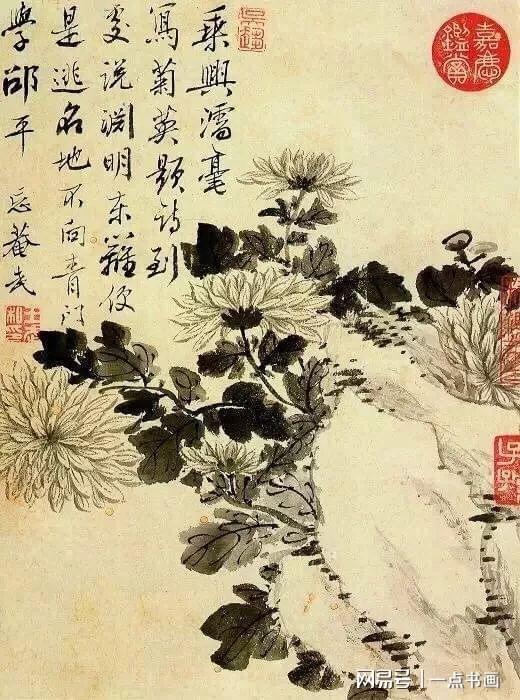 乘興濡毫
寫菊英題詩到
處說淵明東籬便
是逃名地不向青門
學邵平 忘菴武
嘉慶
鑑賞
网易号 | 一点书画